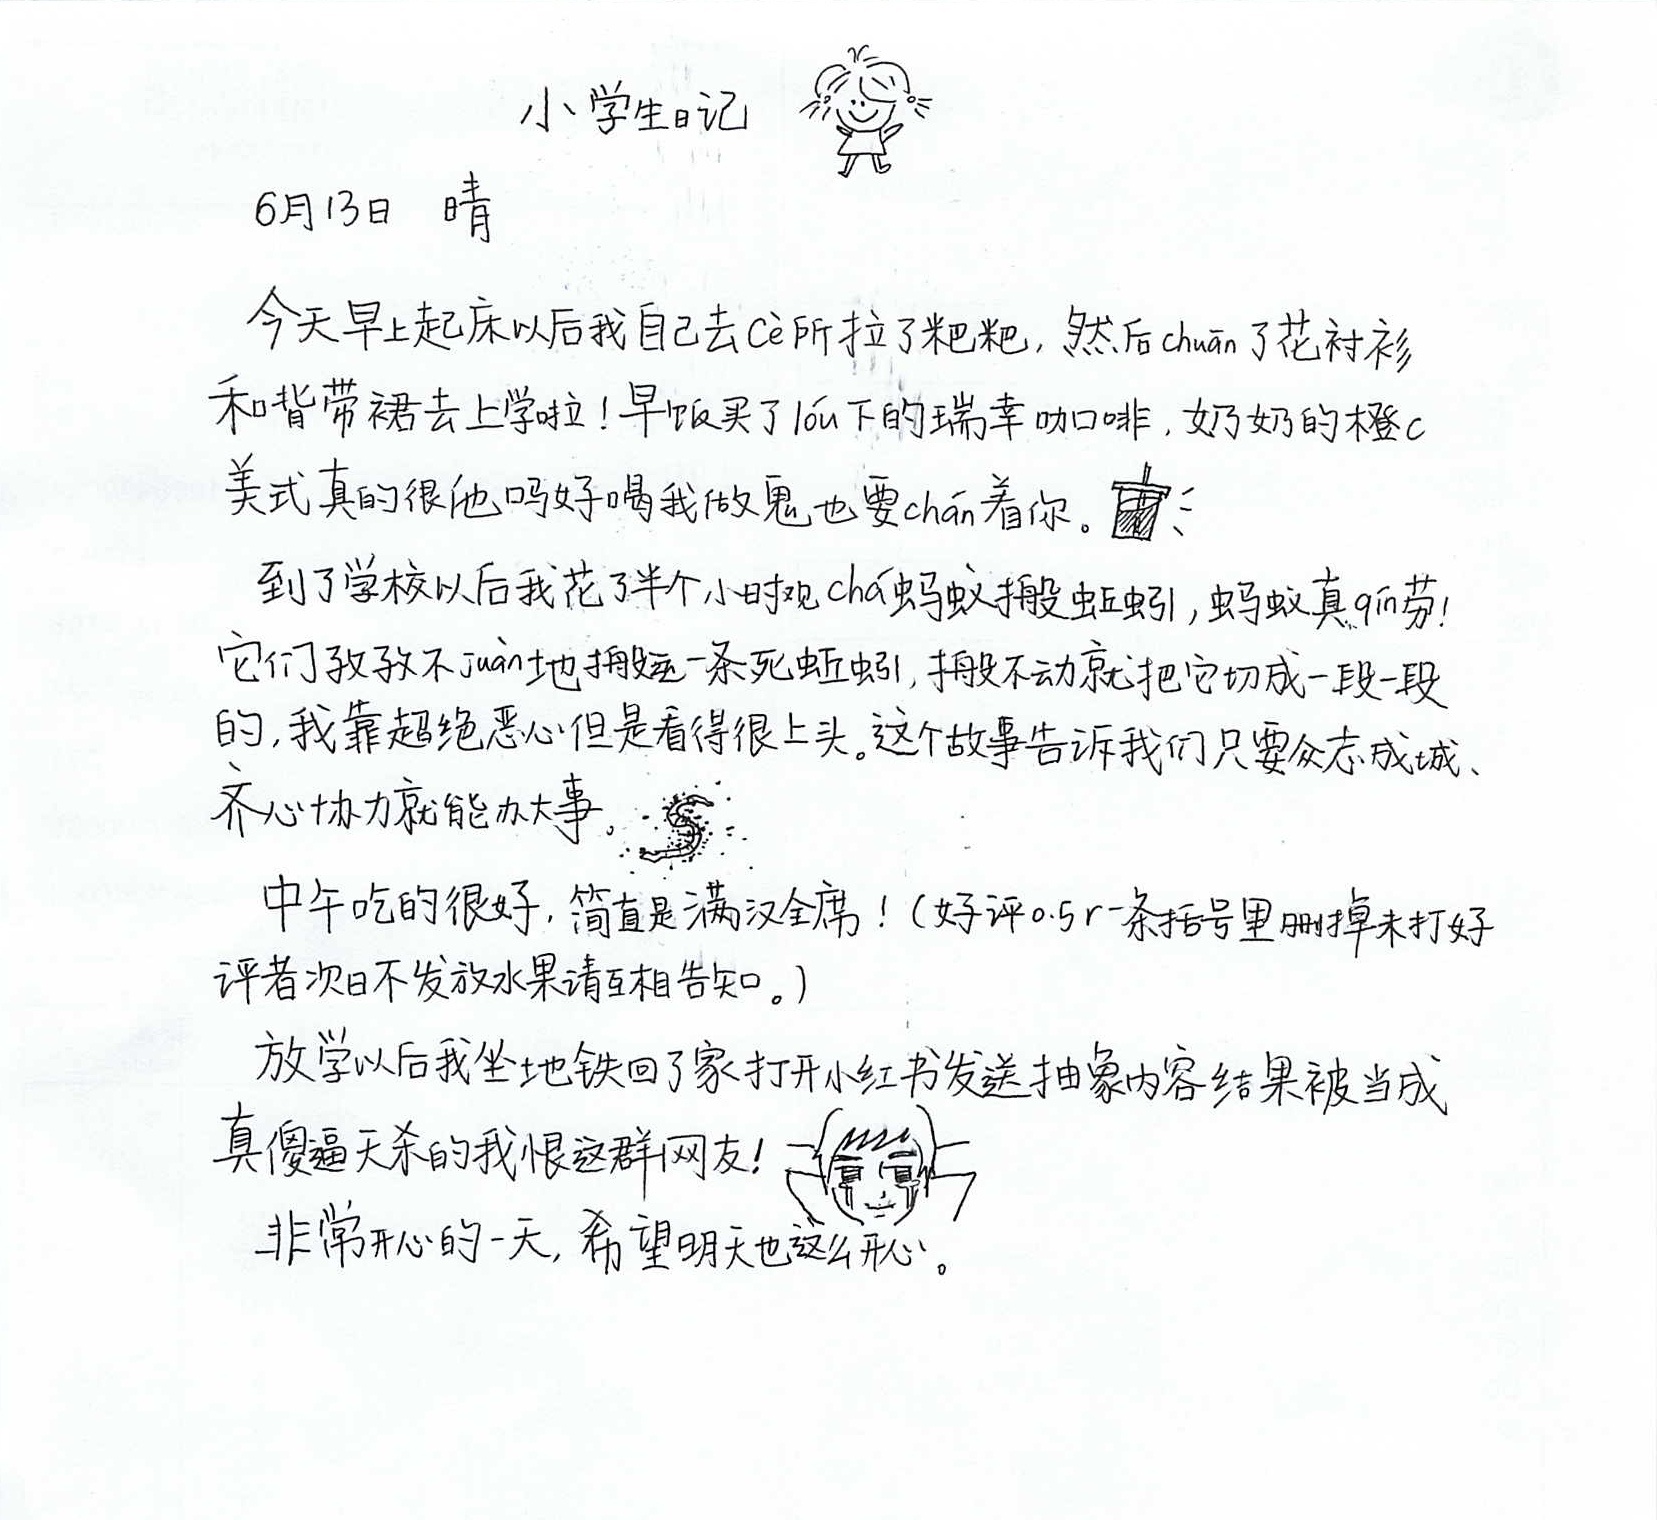 小学生日记
6月13日 晴
今天早上起床以后我自己去cè所拉了粑粑，然后chuān了花衬衫
和背带裙去上学啦！早饭买了lóu下的瑞幸咖啡，奶奶的橙c
美式真的很他吗好喝我做鬼也要chán着你。
到了学校以后我花了半个小时观chá蚂蚁搬蚯蚓，蚂蚁真qín劳！
它们孜孜不juàn地搬运一条死蚯蚓，搬不动就把它切成一段一段
的，我靠超绝恶心但是看得很上头。这个故事告诉我们只要众志成城、
齐心协力就能办大事。
中午吃的很好，简直是满汉全席！（好评0.5r一条括号里删掉未打好
评者次日不发放水果请互相告知。）
放学以后我坐地铁回了家打开小红书发送抽象内容结果被当成
真傻逼天杀的我恨这群网友！
非常开心的一天，希望明天也这么开心。